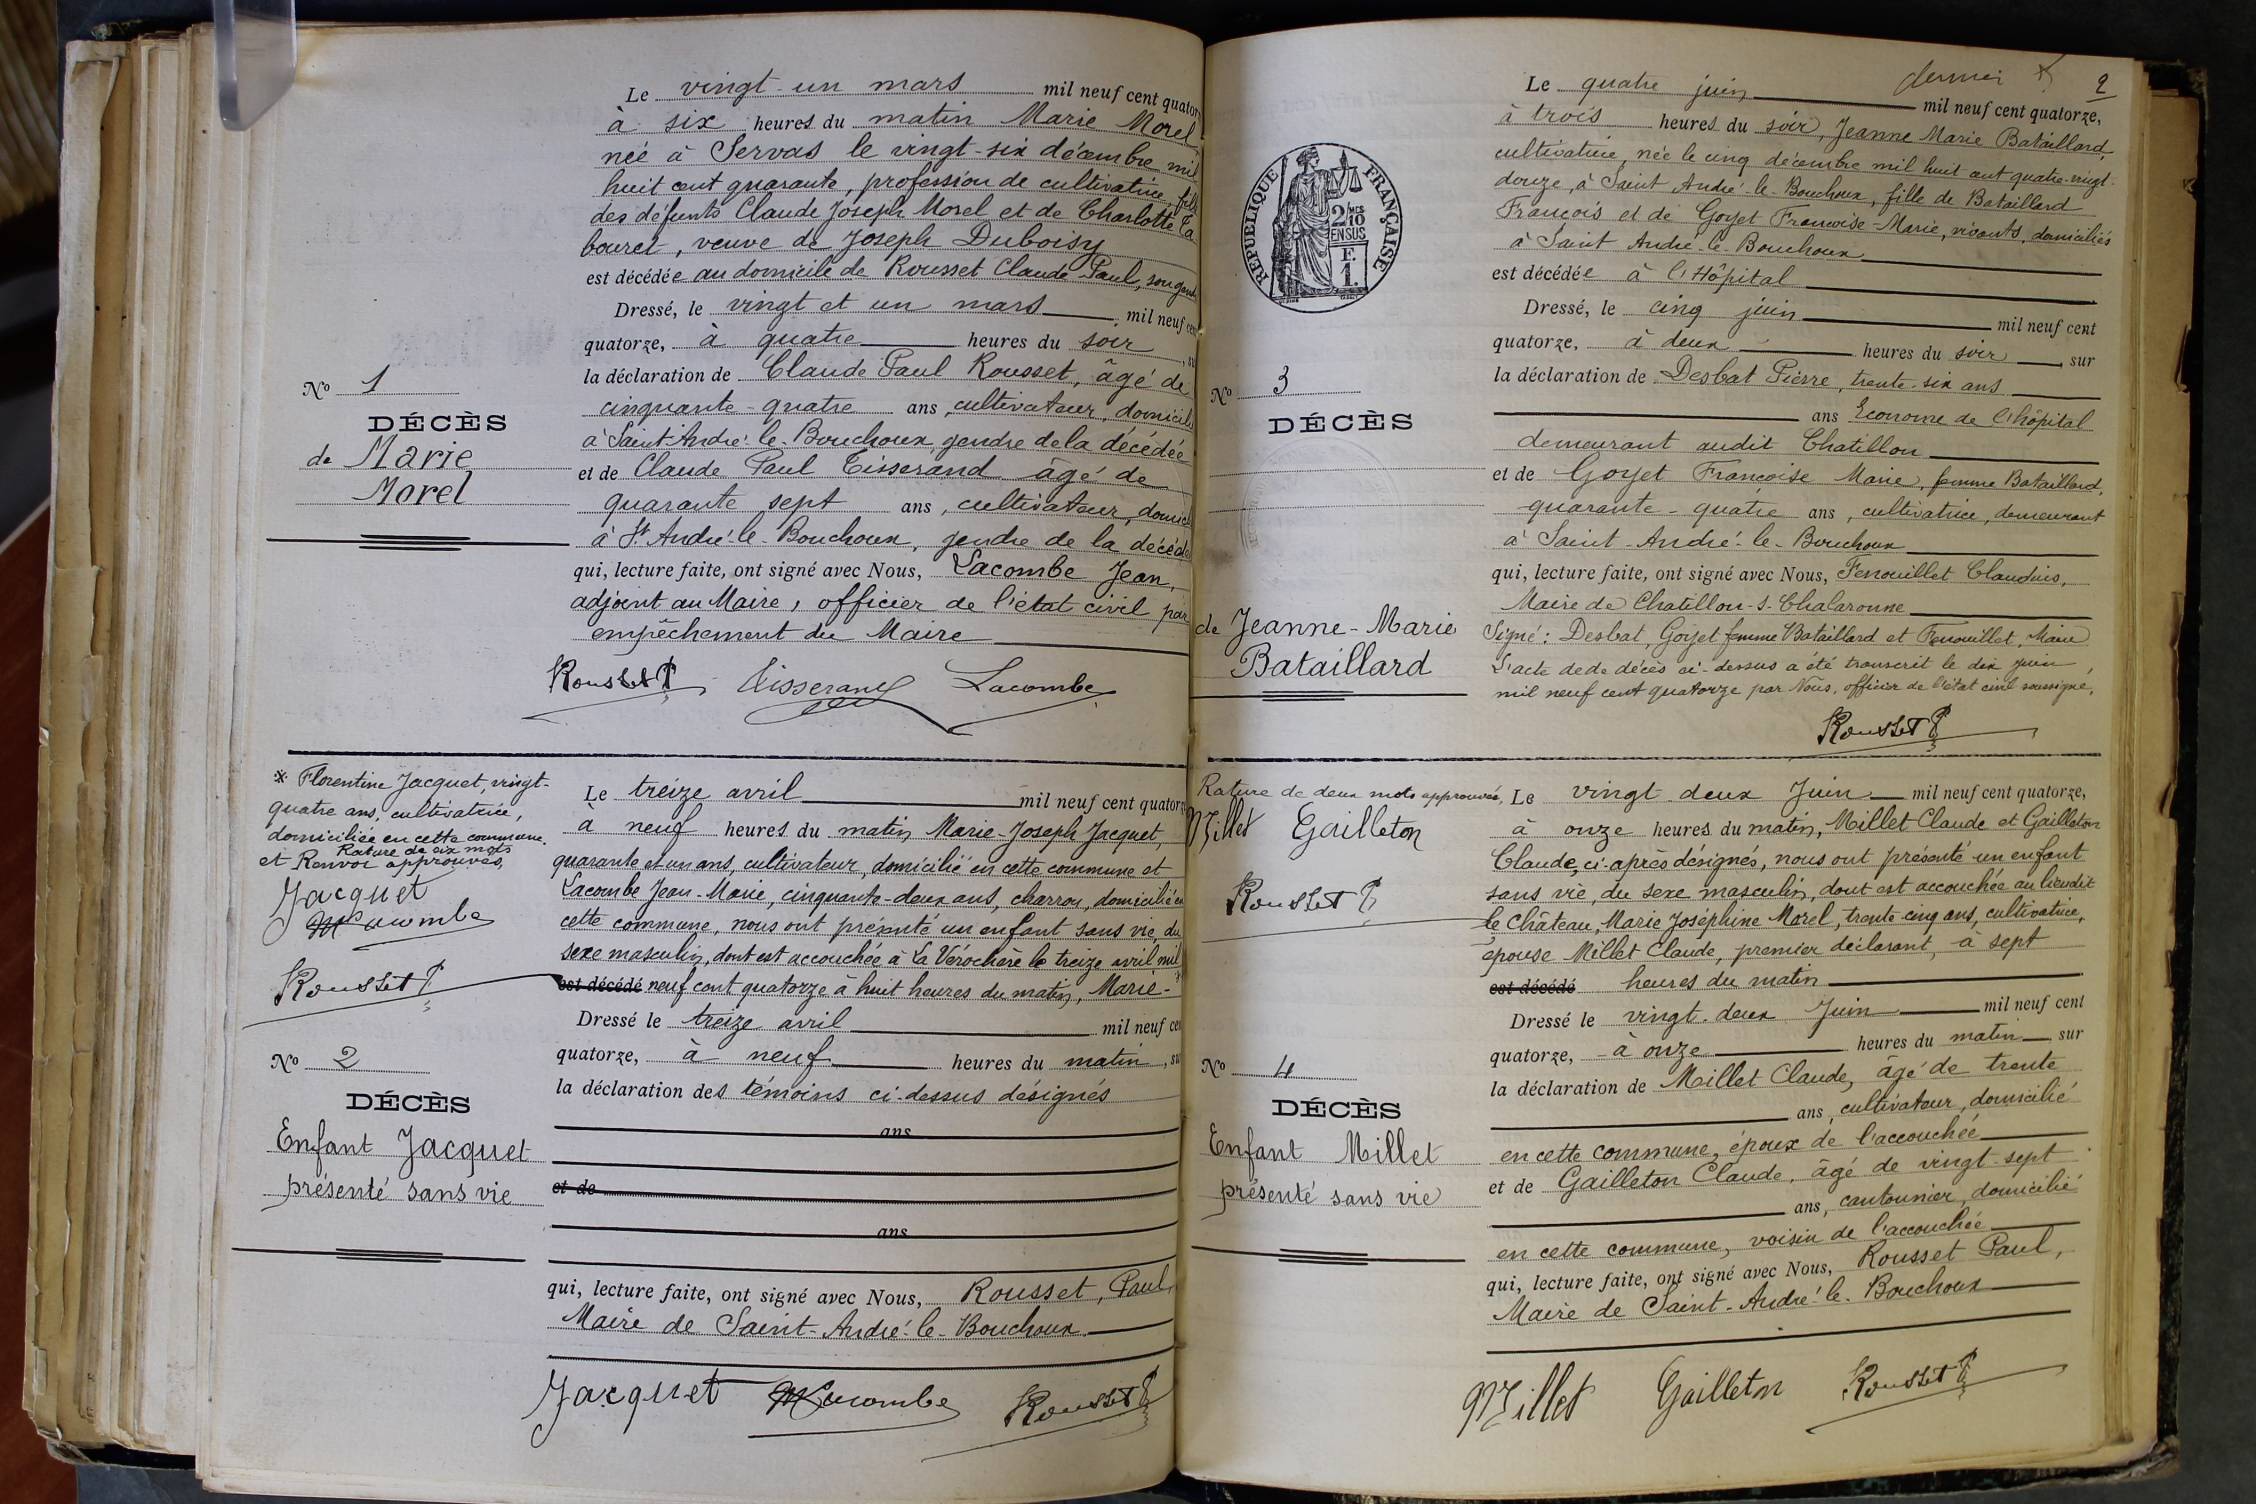 Le vingt-un mars mil neuf cent quator
à six heures du matin Marie Morel
née à Servas le vingt-six décembre mil
huit cent quarante, profession de cultivatrice, fille
des défunts Claude Joseph Morel et de Charlotte Ta
bouret, veuve de Joseph Duboisy
est décédée au domicile de Rousset Claude Paul, son gendre
Dressé, le vingt et un mars mil neuf cent
quatorze, à quatre heures du soir, su
la déclaration de Claude Paul Rousset, âgé de
cinquante-quatre ans, cultivateur, domicilié
à Saint-André-le-Bouchoux, gendre de la décédée
et de Claude Paul Tisserand âgé de
quarante sept ans, cultivateur, domicilié
à St André-le-Bouchoux, gendre de la décédée
qui, lecture faite, ont signé avec Nous, Lacombe Jean,
adjoint au Maire, officier de l'état civil par
empêchement du Maire
Rousset P Tisserand Lacombe
No 1
DÉCÈS
de Marie
Morel
* Florentine Jacquet, vingt-
quatre ans, cultivatrice,
domiciliée en cette commune.
Rature de six mots
et Renvoi approuvés,
Jacquet
Lacombe
Rousset P
No 2
DÉCÈS
Enfant Jacquet
présenté sans vie
Le treize avril mil neuf cent quator
à neuf heures du matin, Marie-Joseph Jacquet,
quarante et un ans, cultivateur, domicilié en cette commune et
Lacombe Jean-Marie, cinquante-deux ans, charron, domicilié en
cette commune, nous ont présenté un enfant sans vie, du
sexe masculin, dont est accouchée à La Vérochère le treize avril mil
est décédé neuf cent quatorze à huit heures du matin, Marie-*
Dressé le treize avril mil neuf cen
quatorze, à neuf heures du matin, su
la déclaration des témoins ci-dessus désignés
ans
et de
ans
qui, lecture faite, ont signé avec Nous, Rousset, Paul,
Maire de Saint-André-le-Bouchoux
Jacquet Lacombe Rousset P
2
Le quatre juin mil neuf cent quatorze,
à trois heures du soir, Jeanne Marie Bataillard,
cultivatrice, née le cinq décembre mil huit cent quatre-vingt-
douze, à Saint André-le-Bouchoux, fille de Bataillard
François et de Goyet Françoise-Marie, vivants, domiciliés
à Saint André-le-Bouchoux
est décédée à l'Hôpital
Dressé, le cinq juin mil neuf cent
quatorze, à deux heures du soir, sur
la déclaration de Desbat Pierre, trente-six ans
ans Econome de l'hôpital
demeurant audit Chatillon
et de Goyet Françoise Marie, femme Bataillard,
quarante-quatre ans, cultivatrice, demeurant
à Saint-André-le-Bouchoux
qui, lecture faite, ont signé avec Nous, Fenouillet Claudius,
Maire de Chatillon-s-Chalaronne
Signé: Desbat, Goyet femme Bataillard et Fenouillet, Maire
L'acte de de décès ci-dessus a été transcrit le dix juin
mil neuf cent quatorze par Nous, officier de l'état civil soussigné,
Rousset P
REPUBLIQUE FRANÇAISE
2/10MES
EN SUS
F.
1.
No 3
DÉCÈS
de Jeanne-Marie
Bataillard
Rature de deux mots approuvée,
Millet Gailleton
Rousset P
No 4
DÉCÈS
Enfant Millet
présenté sans vie
Le vingt-deux Juin mil neuf cent quatorze,
à onze heures du matin, Millet Claude et Gailleton
Claude, ci-après désignés, nous ont présenté un enfant
sans vie, du sexe masculin, dont est accouchée au lieudit
le Château, Marie Joséphine Morel, trente cinq ans, cultivatrice,
épouse Millet Claude, premier déclarant, à sept
est décédé heures du matin
Dressé le vingt-deux Juin mil neuf cent
quatorze, à onze heures du matin sur
la déclaration de Millet Claude, âgé de trente
ans, cultivateur, domicilié
en cette commune, époux de l'accouchée
et de Gailleton Claude, âgé de vingt-sept
ans, cantonnier, domicilié
en cette commune, voisin de l'accouchée
qui, lecture faite, ont signé avec Nous, Rousset Paul,
Maire de Saint-André-le-Bouchoux
Millet Gailleton Rousset P